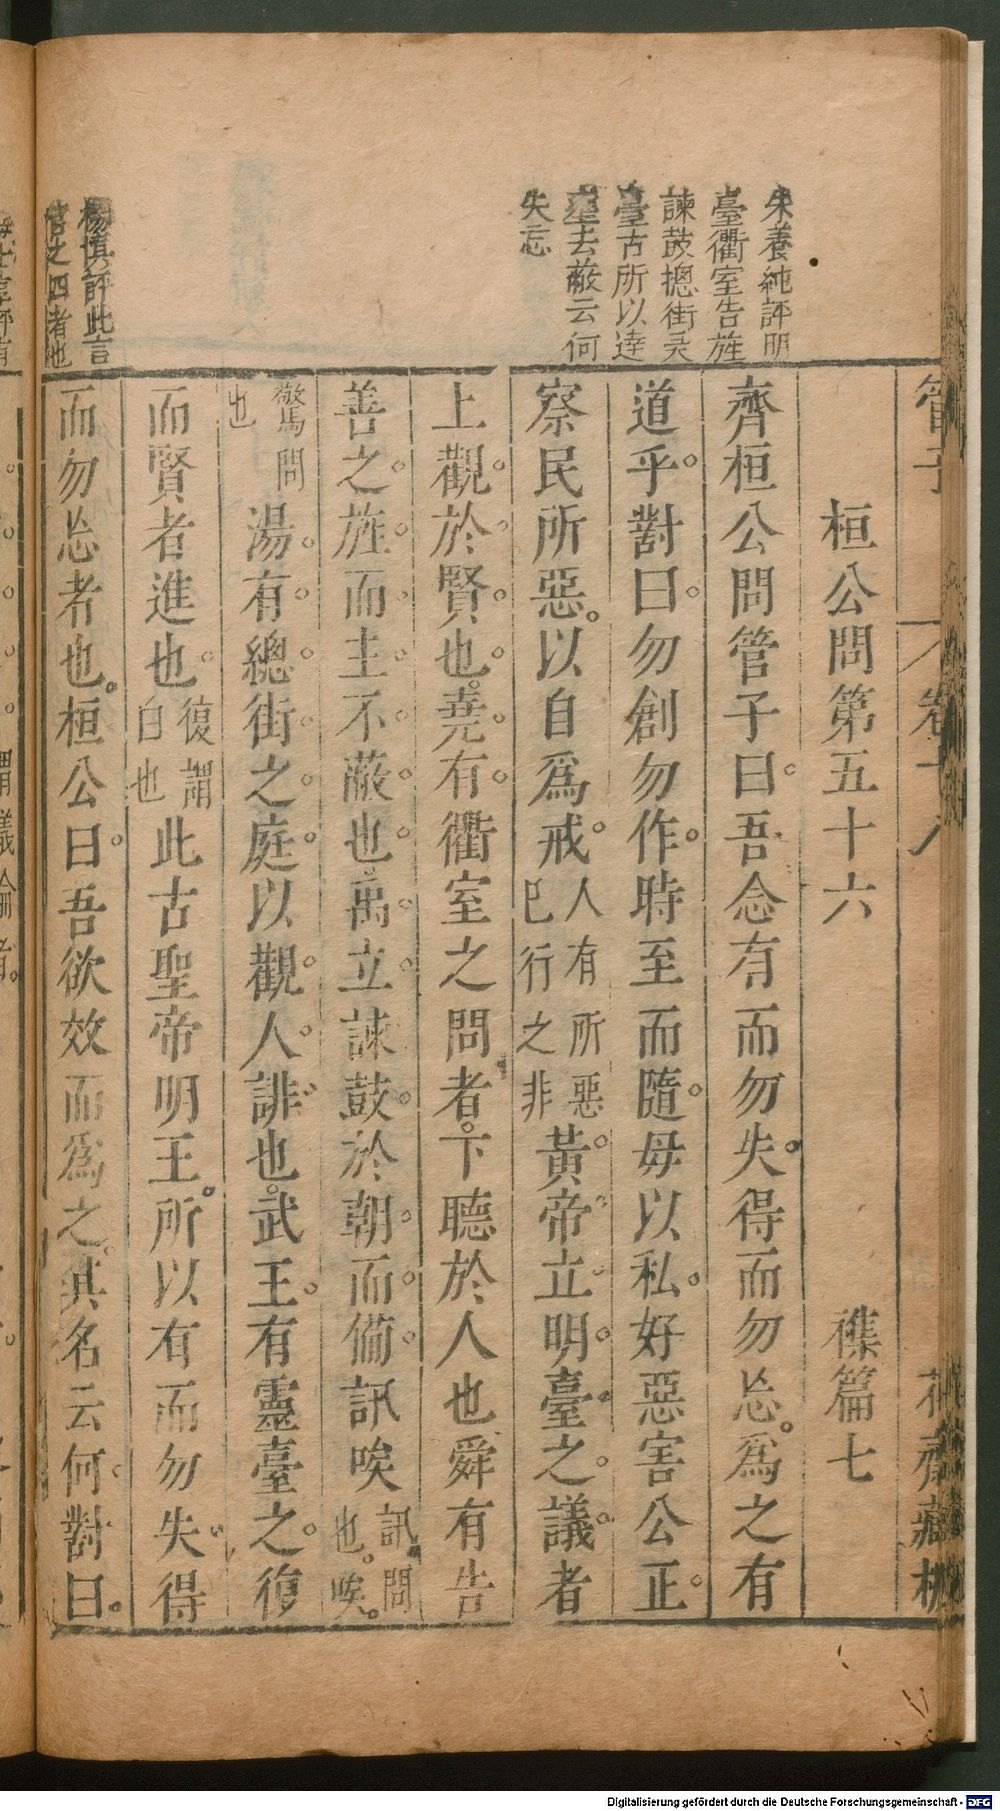 管子
卷十八
花齋藏板
桓公問第五十六 襍篇七
齊桓公問管子曰吾念有而勿失得而勿忘爲之有
道乎對曰勿創勿作時至而隨毋以私好惡害公正
察民所惡以自爲戒人有所惡己行之非黃帝立明臺之議者
上觀於賢也堯有衢室之問者下聽於人也舜有告
善之旌而主不蔽也禹立諫鼓於朝而備訊唉訊問也唉
驚問也湯有總街之庭以觀人誹也武王有靈臺之復
而賢者進也復謂白也此古聖帝明王所以有而勿失得
而勿忘者也桓公曰吾欲效而爲之其名云何對曰
朱養純評明
臺衢室告旌
諫鼓摠街灵
臺古所以達
壅去蔽云何
失忘
楊慎評此言
官之四者也
Digitalisierung gefördert durch die Deutsche Forschungsgemeinschaft - DFG